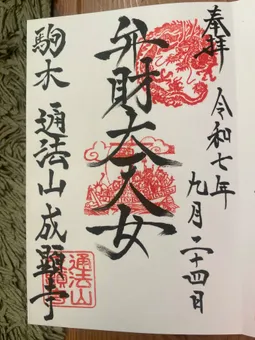 奉拝
令和七年
九月二十四日
弁財天女
駒木 通法山成顕寺
通法山